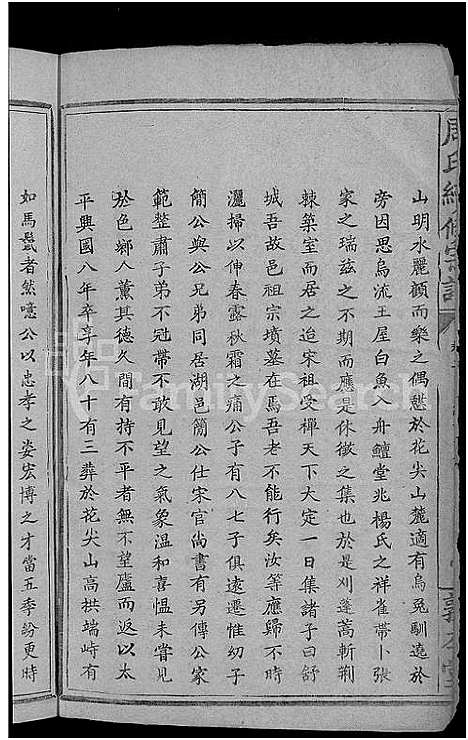 周氏續修宗譜
山明水麗顧而樂之偶憇於花尖山麓適有烏兔馴遶於
旁因思烏流王屋白魚入舟鱣堂兆楊氏之祥雀帶卜張
家之瑞茲之不期而應是休徵之集也於是刈蓬蒿斬荆
棘築室而居之迨宋祖受禪天下大定一日集諸子曰舒
城吾故邑祖宗墳墓在焉吾老不能行矣汝等應歸不時
灑掃以伸春露秋霜之痛公子有八七子俱遠遷惟幼子
簡公與公兄弟同居湖邑簡公仕宋官尚書有另傳公家
範整肅子弟不冠帶不敢見望之氣象溫和喜慍未嘗見
於色鄉人薰其德久間有持不平者無不望廬而返以太
平興國八年卒享年八十有三葬於花尖山高拱端峙有
如馬鬛者然噫公以忠孝之姿宏博之才當五季紛更時
FamilySearch